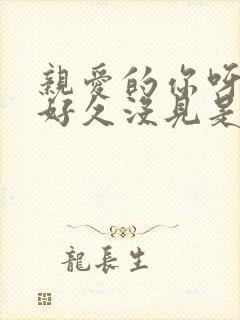 親愛的你呀
好久沒見是
龍長生